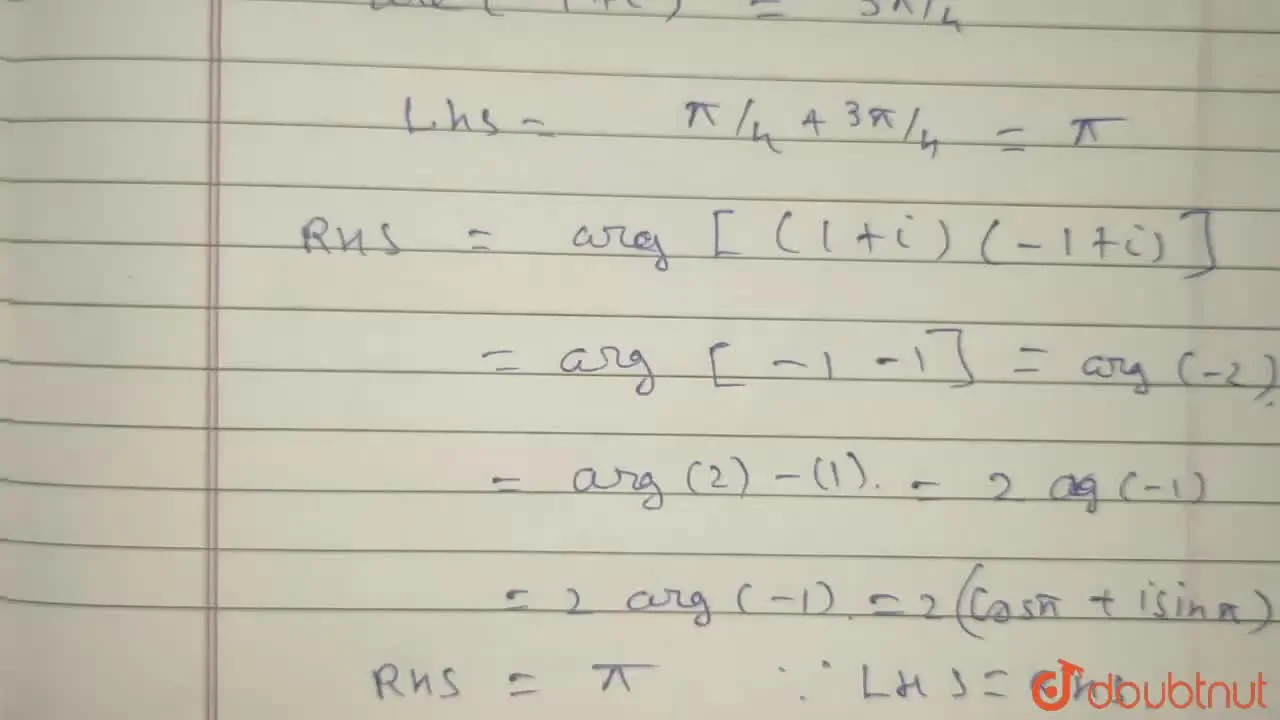 = 3π/4
LHS = π/4 + 3π/4 = π
RHS = arg [ (1+i) (-1+i) ]
= arg [ -1 -1 ] = arg (-2).
= arg (2) - (1). = 2 ag (-1)
= 2 arg (-1). = 2 (Cosπ + isinπ)
RHS = π ∵ LHS =
doubtnut